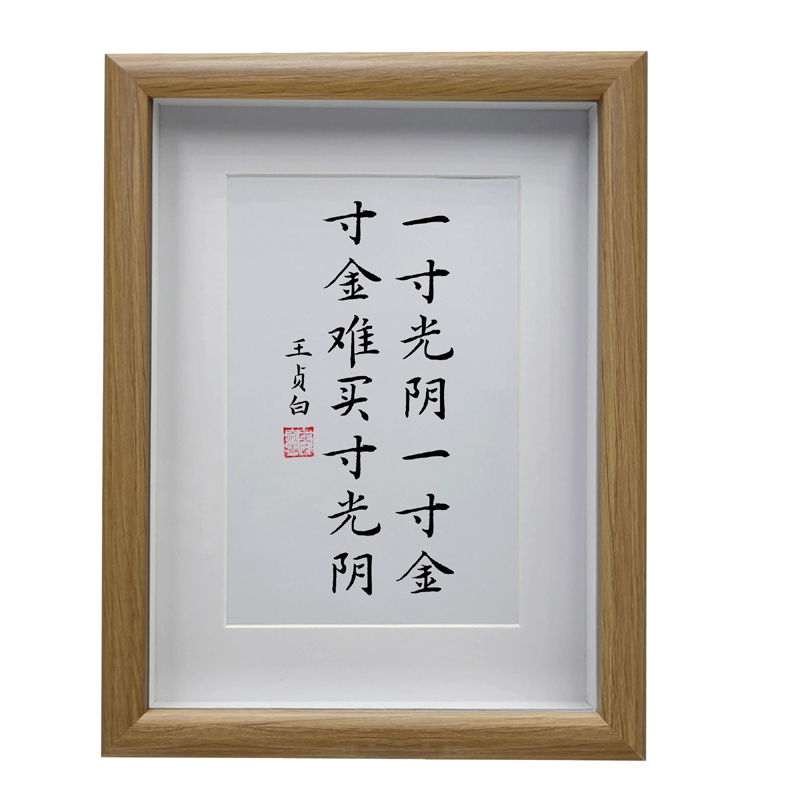 一寸光阴一寸金
寸金难买寸光阴
王贞白